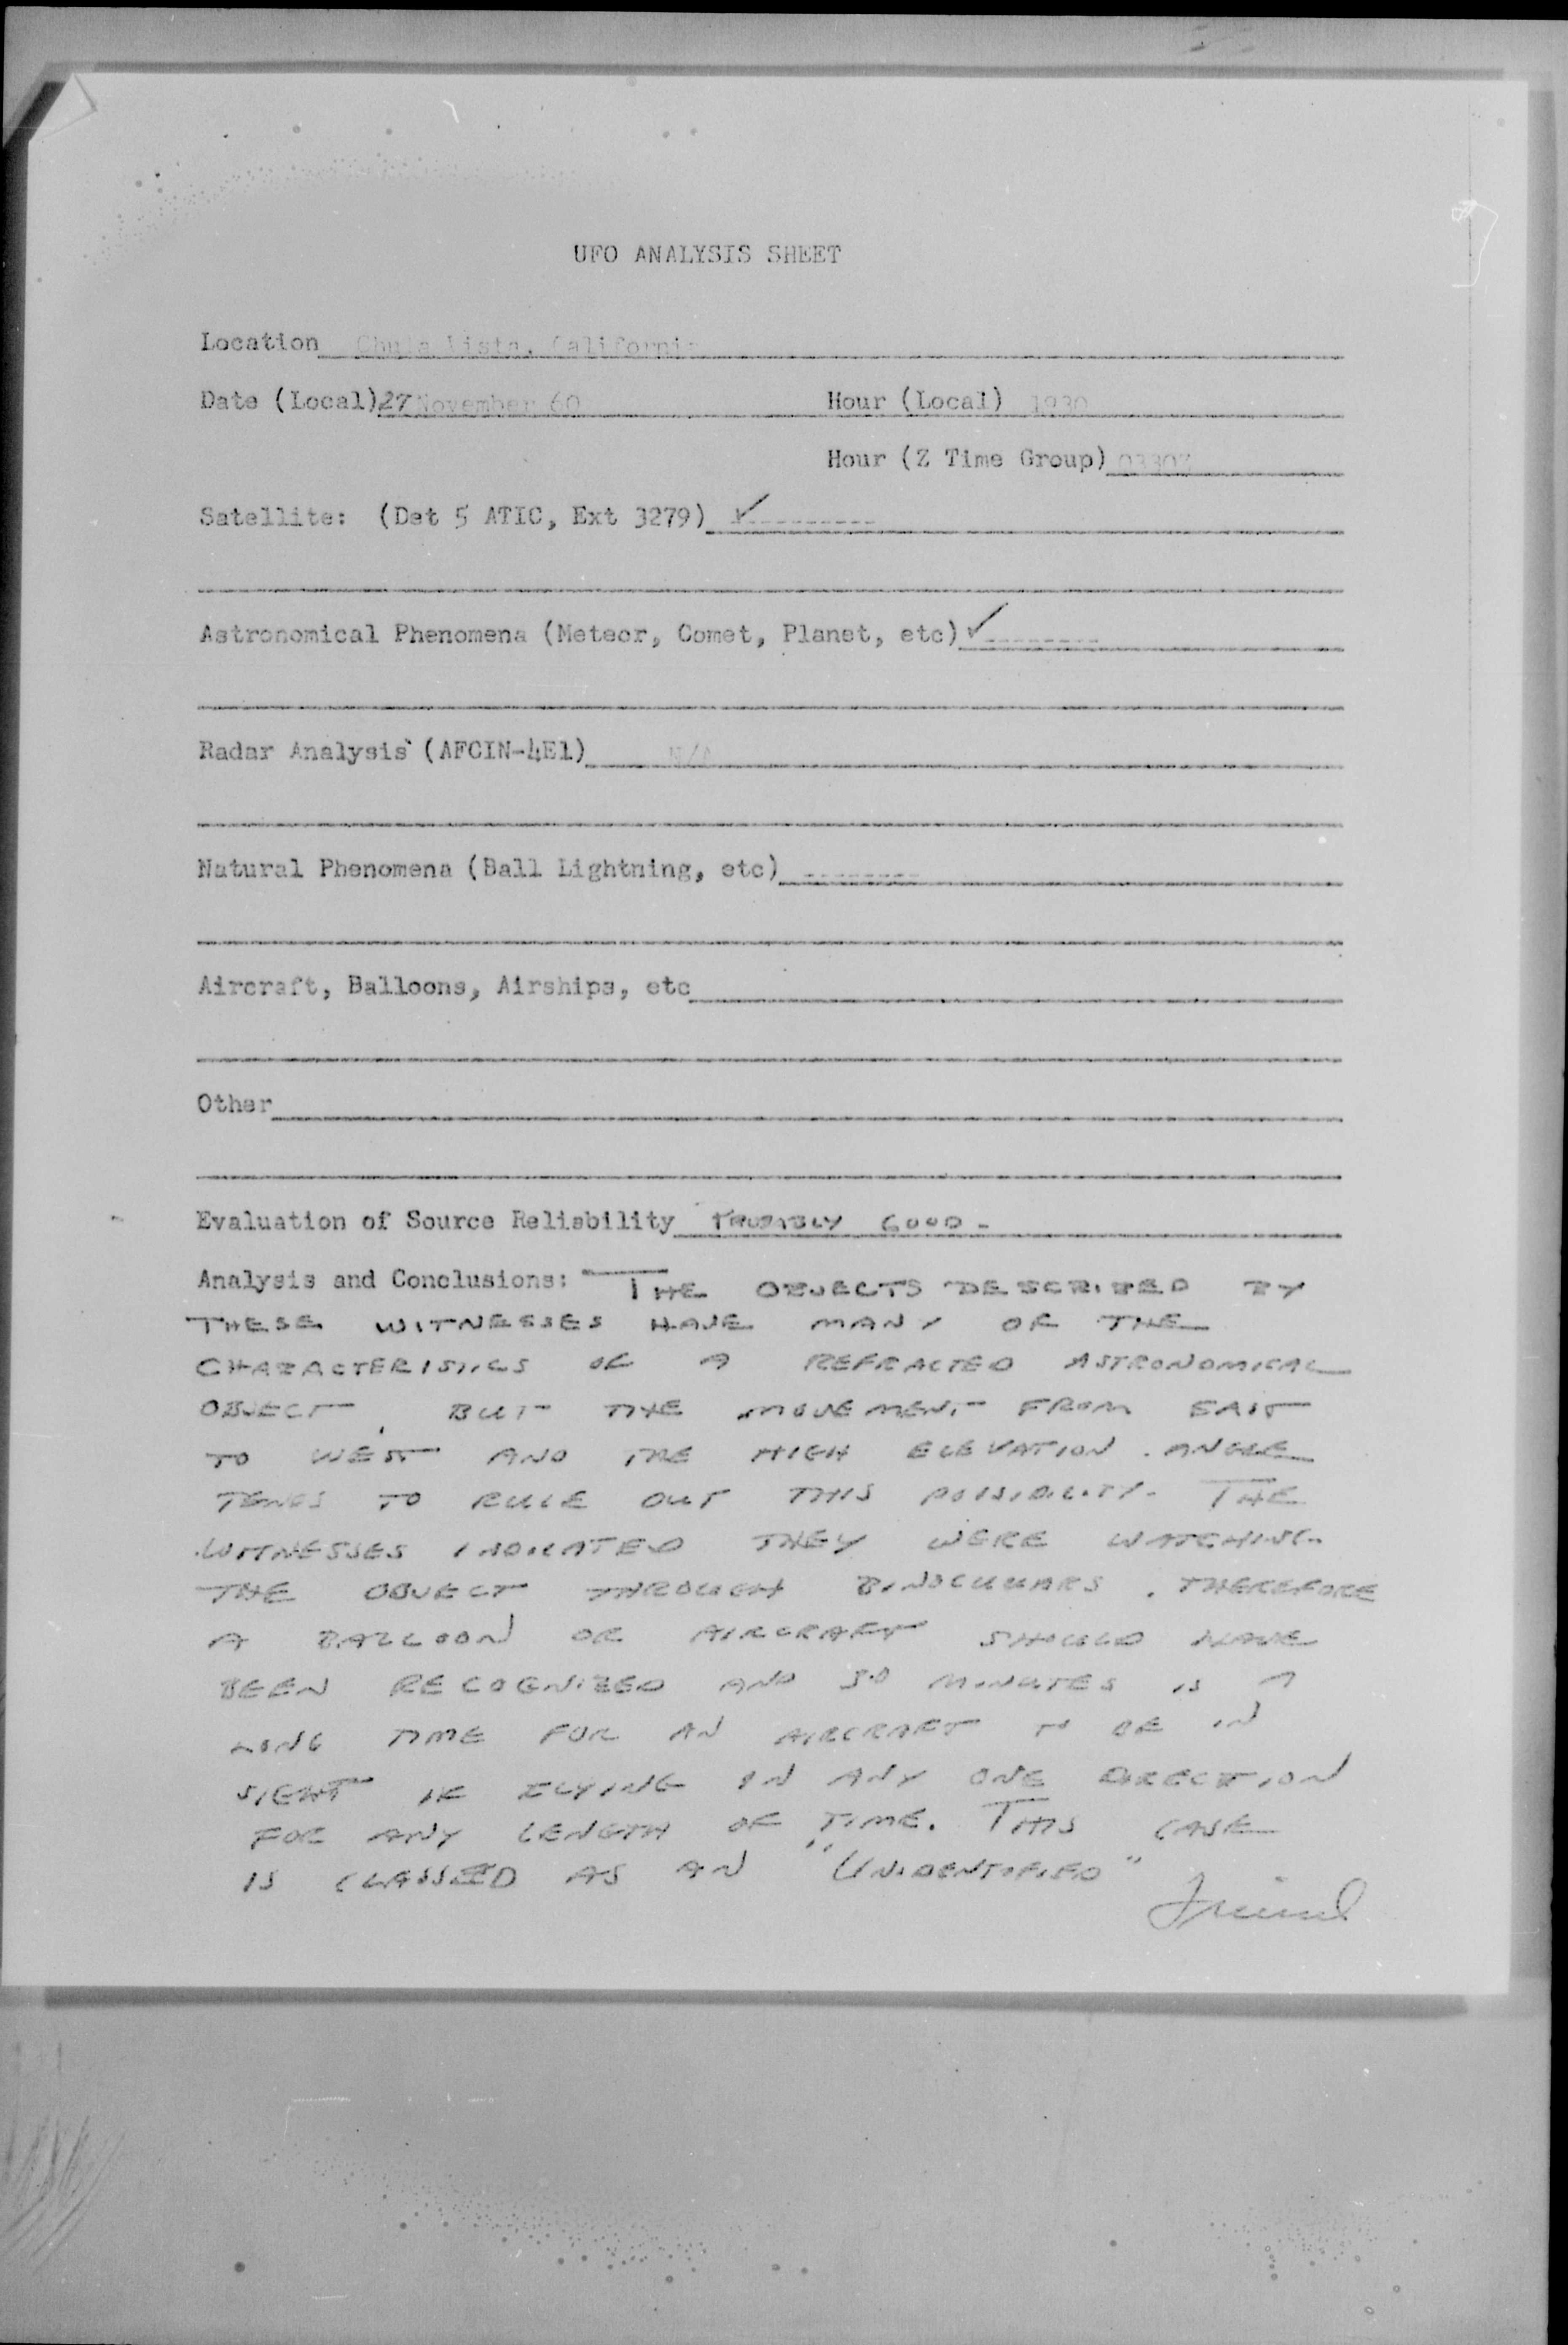 UFO ANALYSIS SHEET
Location Chula Vista, California
Date (Local) 27 November 60 Hour (Local) 1930
Hour (Z Time Group) 0330Z
Satellite: (Det 5 ATIC, Ext 3279) ✓---------
Astronomical Phenomena (Meteor, Comet, Planet, etc) ✓--------
Radar Analysis (AFCIN-4E1) N/A
Natural Phenomena (Ball Lightning, etc) --------
Aircraft, Balloons, Airships, etc
Other
Evaluation of Source Reliability PROBABLY GOOD -
Analysis and Conclusions: THE OBJECTS DESCRIBED BY
THESE WITNESSES HAVE MANY OF THE
CHARACTERISTICS OF A REFRACTED ASTRONOMICAL
OBJECT, BUT THE MOVEMENT FROM EAST
TO WEST AND THE HIGH ELEVATION ANGLE
TENDS TO RULE OUT THIS POSSIBILITY. THE
WITNESSES INDICATED THEY WERE WATCHING
THE OBJECT THROUGH BINOCULARS. THEREFORE
A BALLOON OR AIRCRAFT SHOULD HAVE
BEEN RECOGNIZED AND 30 MINUTES IS A
LONG TIME FOR AN AIRCRAFT TO BE IN
SIGHT IF FLYING IN ANY ONE DIRECTION
FOR ANY LENGTH OF TIME. THIS CASE
IS CLASSED AS AN "UNIDENTIFIED"